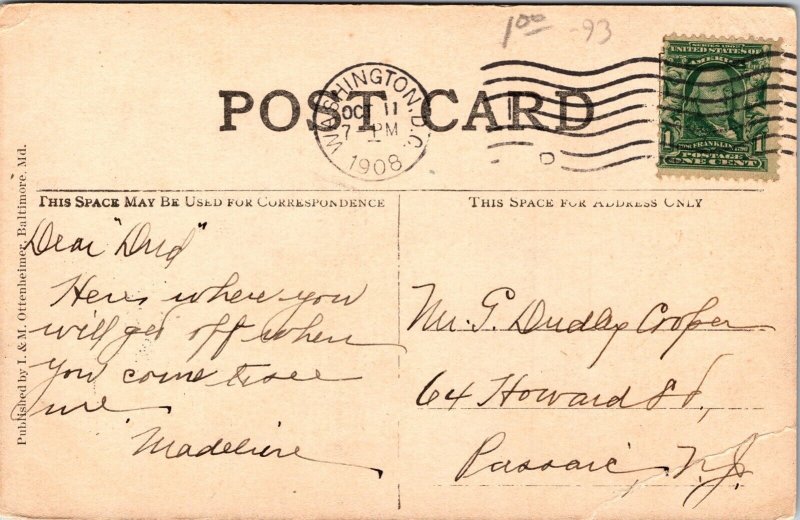 1.00 -93
POST CARD
WASHINGTON, D.C.
OCT 11
7 PM
1908
D
SERIES 1902
UNITED STATES OF
AMERICA
1 FRANKLIN 1
POSTAGE
ONE CENT
THIS SPACE MAY BE USED FOR CORRESPONDENCE
THIS SPACE FOR ADDRESS ONLY
Published by I. & M. Ottenheimer, Baltimore, Md.
Dear "Dud"
Heres where you
will get off when
you come to see
me
Madeline
Mr. G. Dudley Cooper
64 Howard St,
Passaic, N.J.